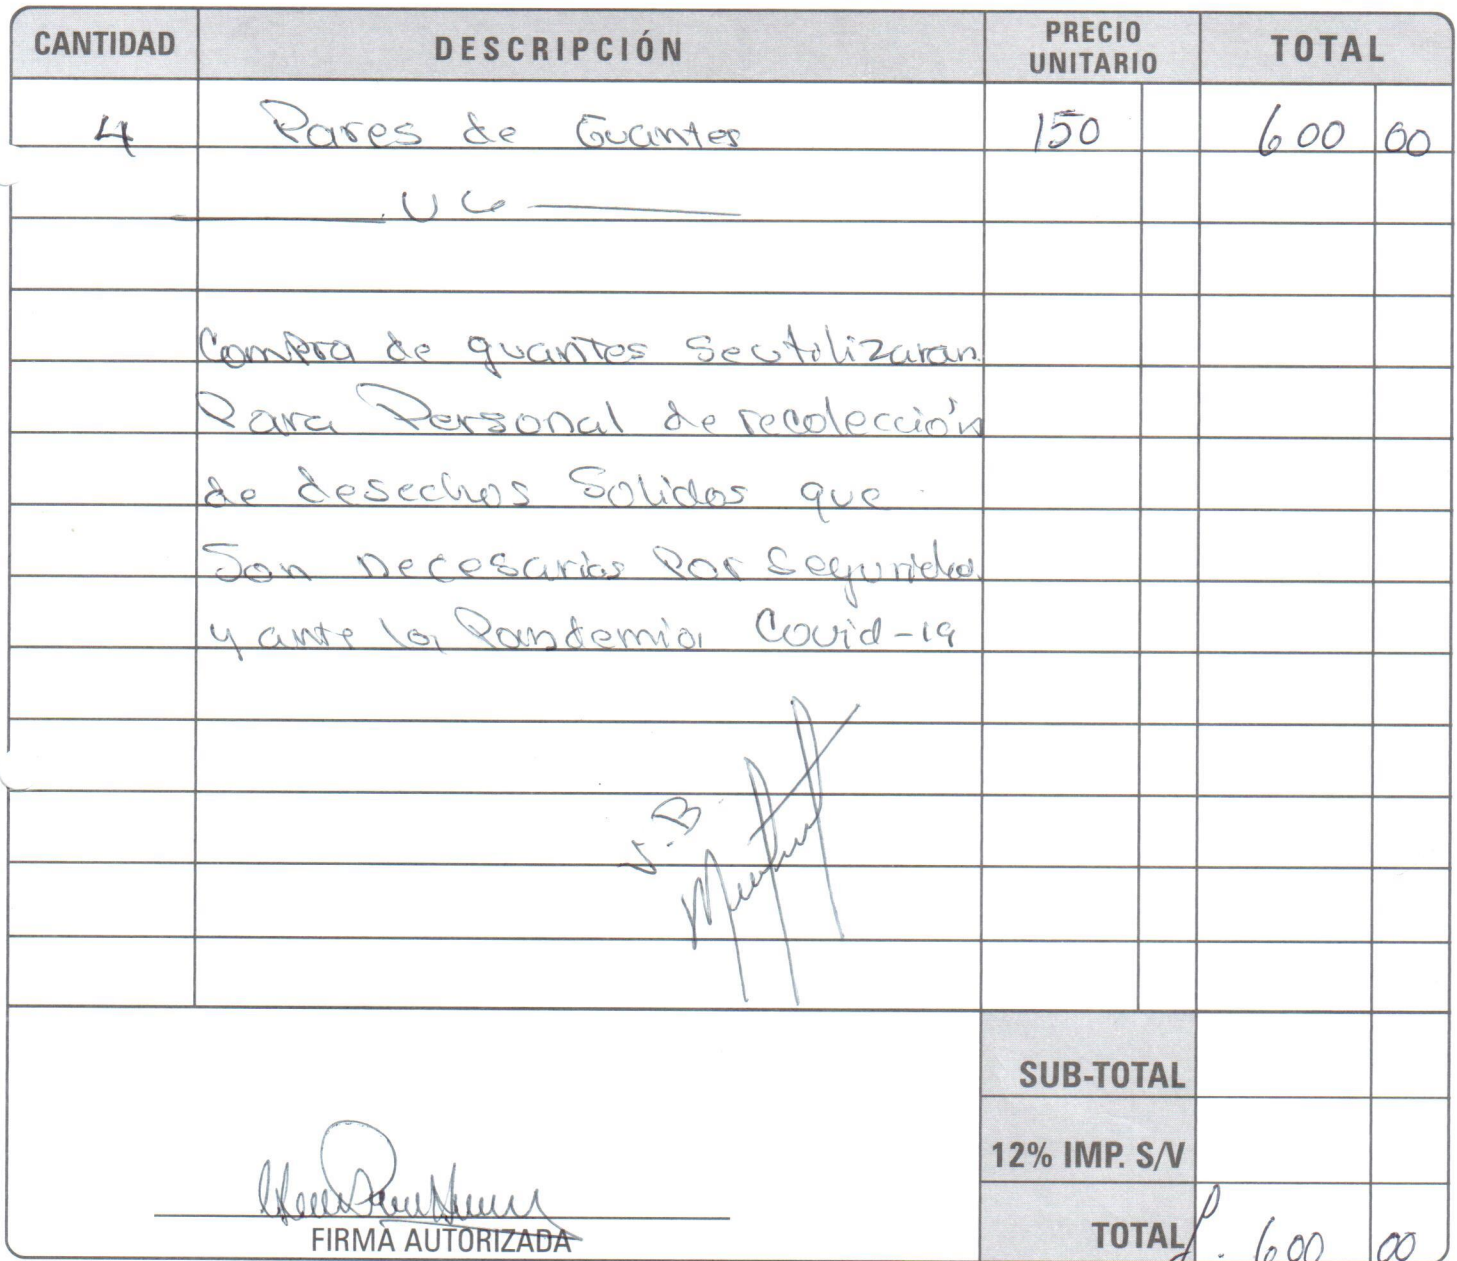 CANTIDAD DESCRIPCIÓN PRECIO UNITARIO TOTAL
4 Pares de Guantes 150 600 00
UL
Compra de guantes se utilizaran
Para Personal de recolección
de desechos Solidos que
Son necesarios Por Seguridad
y ante la Pandemia Covid-19
V.B
SUB-TOTAL
12% IMP. S/V
FIRMA AUTORIZADA
TOTAL L. 600 00